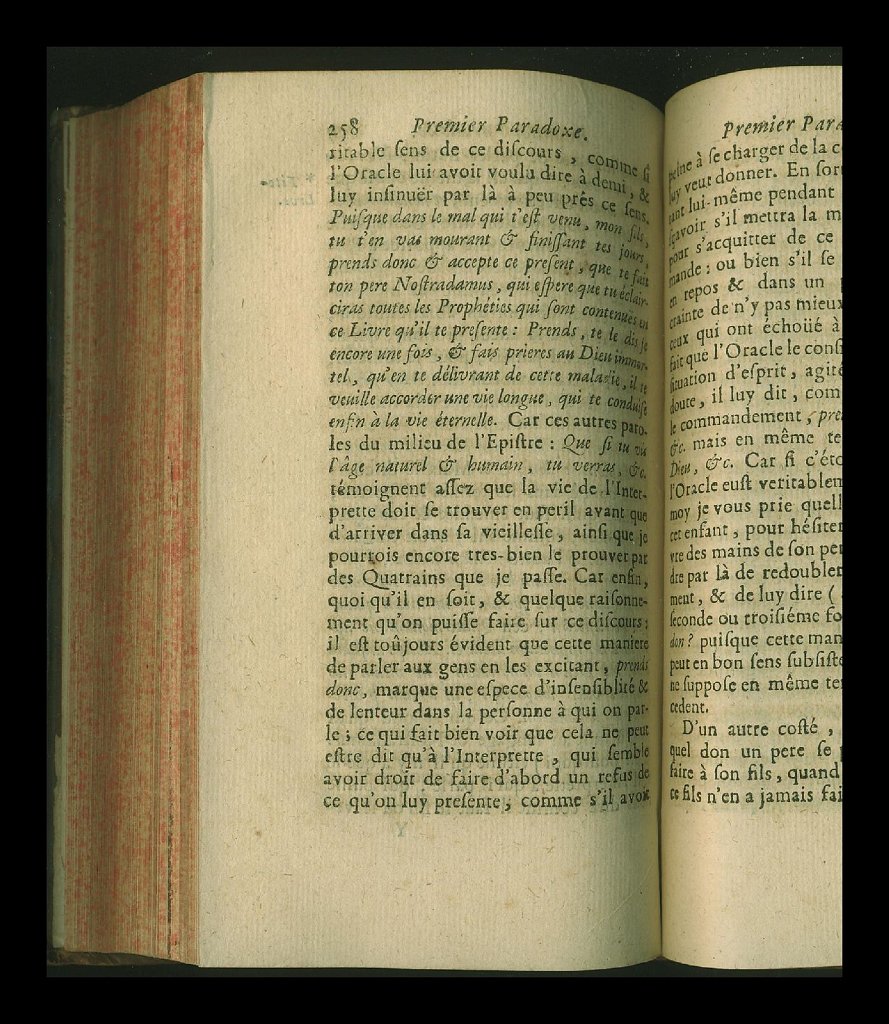 258 Premier Paradoxe.
ritable ſens de ce diſcours, comme ſi
l'Oracle lui avoit voulu dire à demi, &
luy inſinuër par là à peu prés ce ſens.
Puiſque dans le mal qui t'eſt venu, mon fils,
tu t'en vas mourant & finiſſant tes jours,
prends donc & accepte ce preſent, que te fait
ton pere Noſtradamus, qui eſpere que tu éclair-
ciras toutes les Prophéties qui ſont contenues en
ce Livre qu'il te preſente : Prends, te le dis je
encore une fois, & fais prieres au Dieu immor-
tel, qu'en te délivrant de cette maladie, il te
veuille accorder une vie longue, qui te conduiſe
enfin à la vie éternelle. Car ces autres paro-
les du milieu de l'Epiſtre : Que ſi tu vis
l'âge naturel & humain, tu verras, &c.
témoignent aſſez que la vie de l'Inter-
prette doit ſe trouver en peril avant que
d'arriver dans ſa vieilleſſe, ainſi que je
pourrois encore tres-bien le prouver par
des Quatrains que je paſſe. Car enfin,
quoi qu'il en ſoit, & quelque raiſonne-
ment qu'on puiſſe faire ſur ce diſcours ;
il eſt toûjours évident que cette maniere
de parler aux gens en les excitant, prends
donc, marque une eſpece d'inſenſiblité &
de lenteur dans la perſonne à qui on par-
le ; ce qui fait bien voir que cela ne peut
eſtre dit qu'à l'Interprette, qui ſemble
avoir droit de faire d'abord un refus de
ce qu'on luy preſente, comme s'il avoit
Premier Para
peine à ſe charger de la c
luy veut donner. En ſor
tant lui-même pendant
ſçavoir s'il mettra la m
pour s'acquitter de ce
mande : ou bien s'il ſe
en repos & dans un
crainte de n'y pas mieux
ceux qui ont échoüé à
fait que l'Oracle le conſ
ſituation d'eſprit, agité
doute, il luy dit, com
le commandement, pre
&c. mais en même te
Dieu, &c. Car ſi c'éto
l'Oracle euſt veritablem
moy je vous prie quell
cet enfant, pour héſiter
vre des mains de ſon per
dre par là de redoubler
ment, & de luy dire (
ſeconde ou troiſiéme fo
don ? puiſque cette man
peut en bon ſens ſubſiſte
ne ſuppoſe en même te
cedent.
D'un autre coſté,
quel don un pere ſe
faire à ſon fils, quand
ce fils n'en a jamais fai